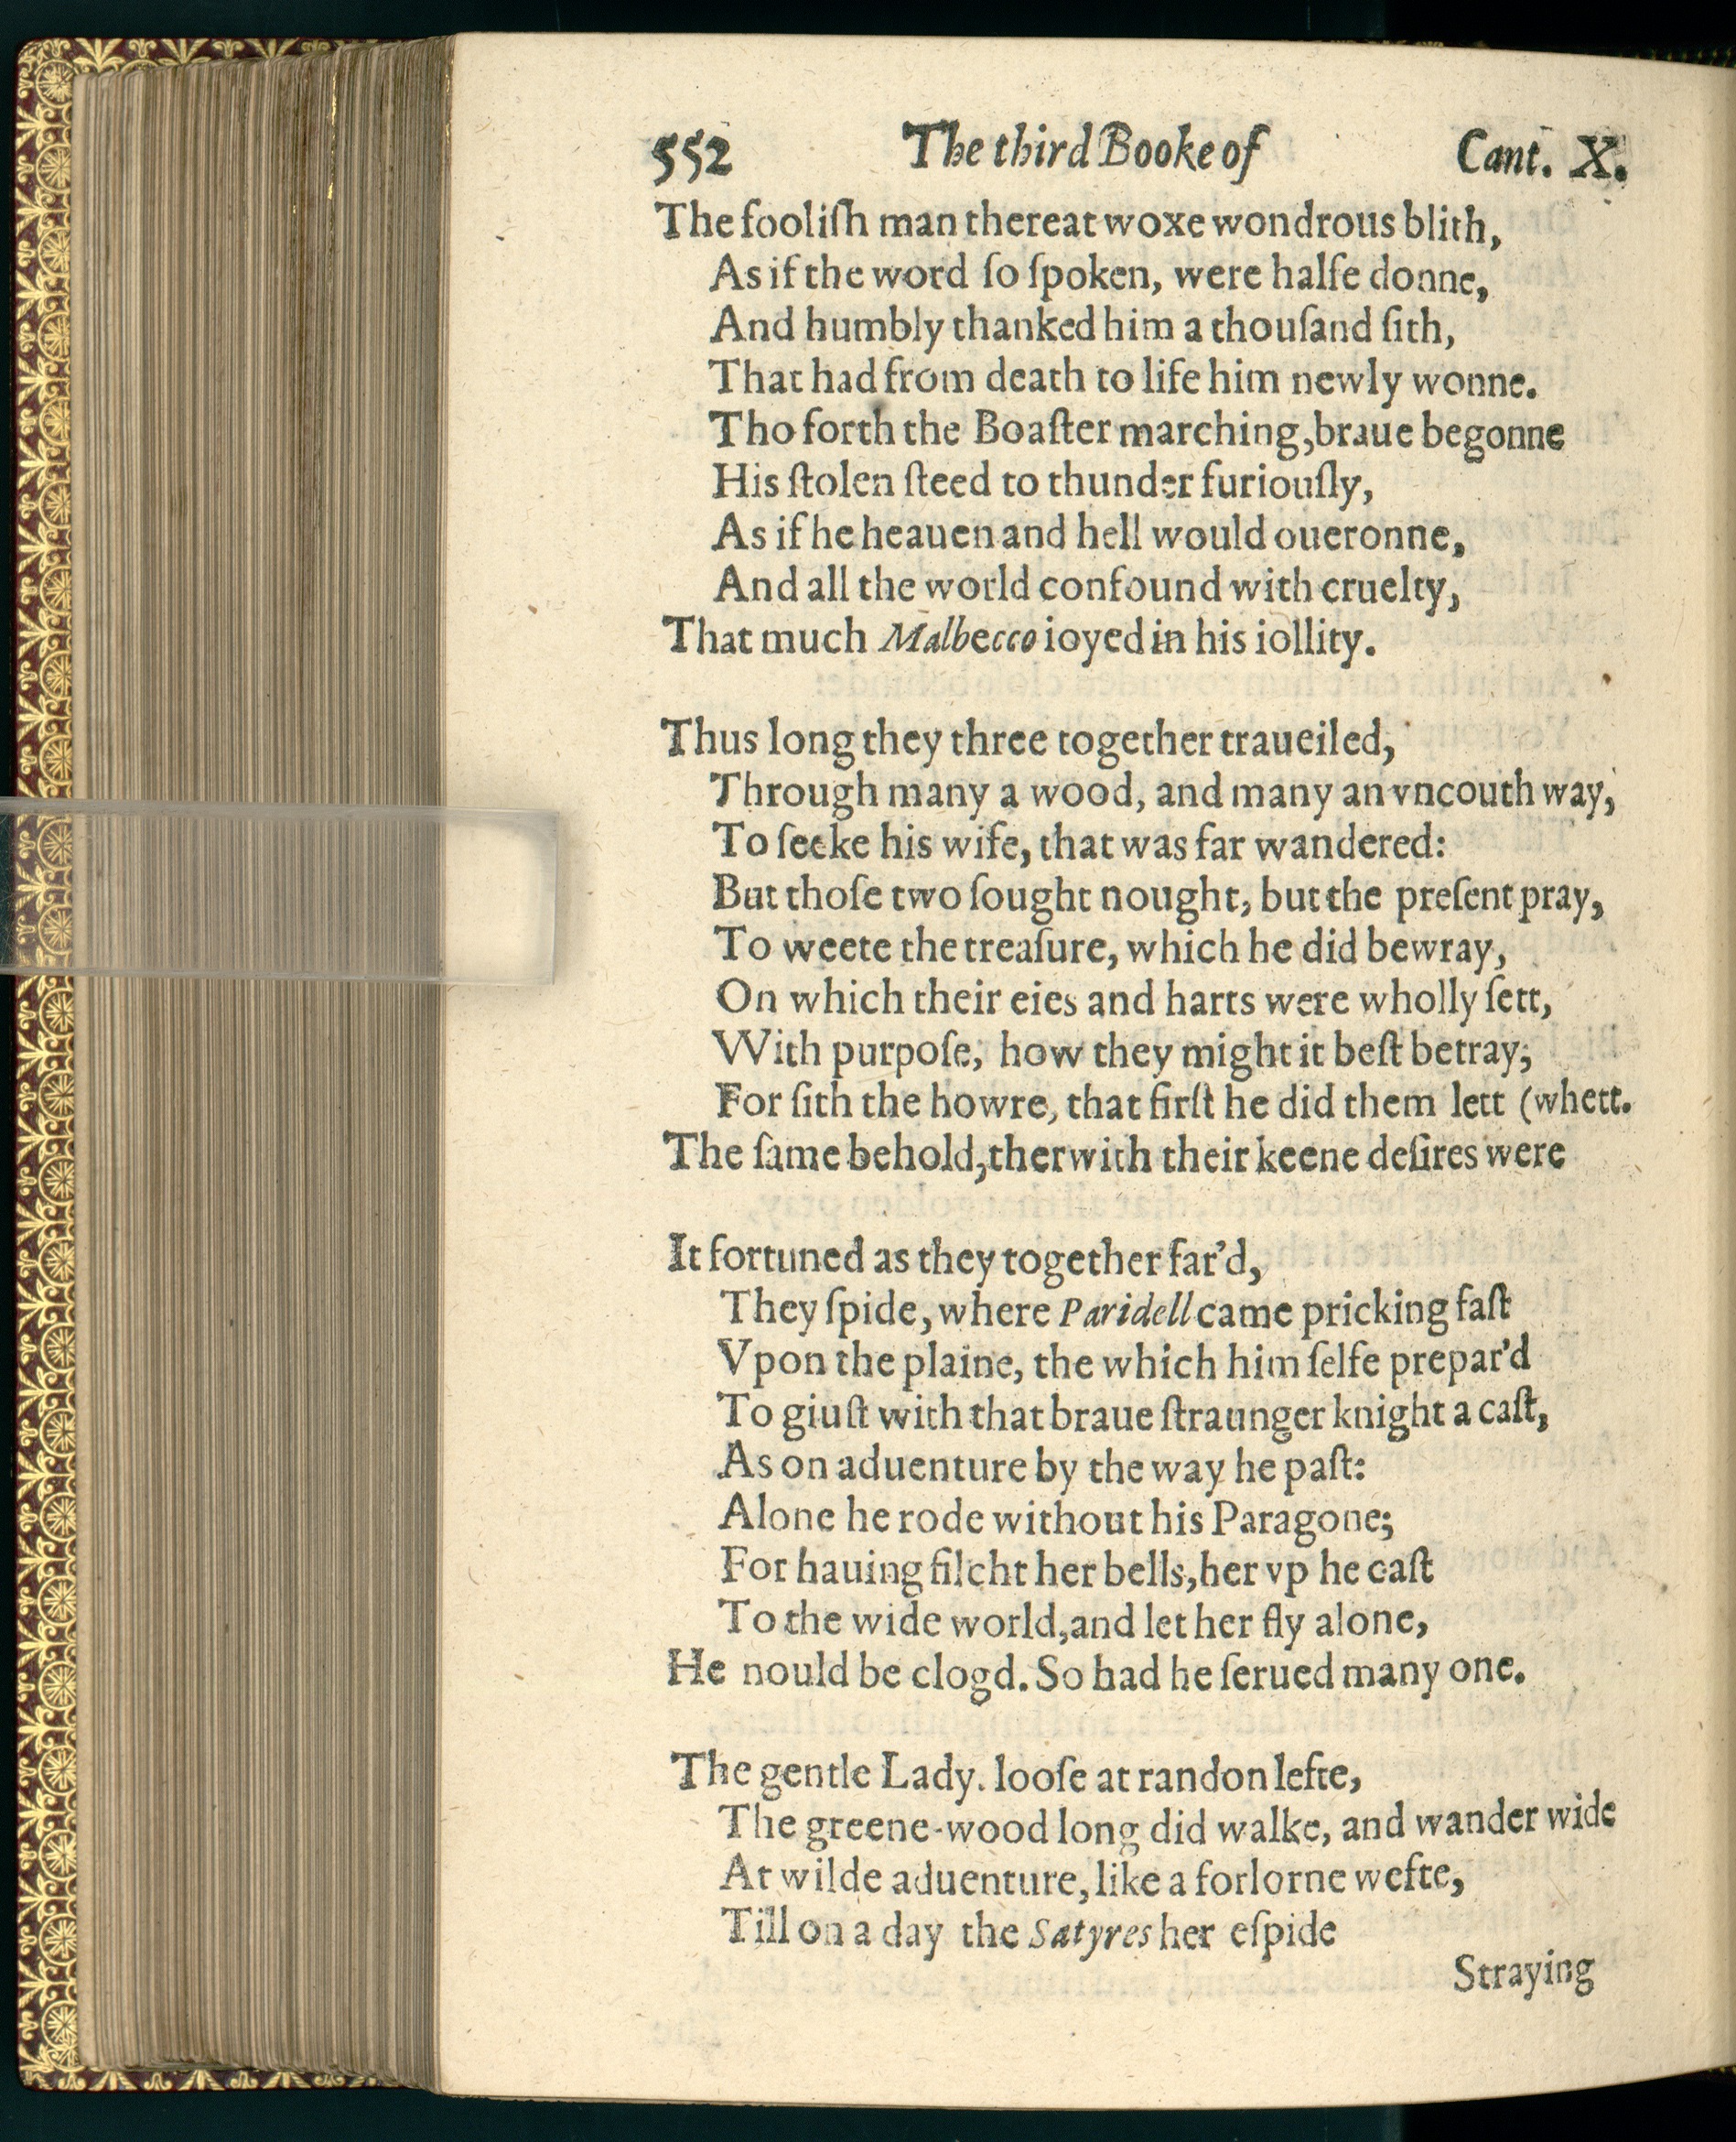 552 The third Booke of Cant. X.
The fooliſh man thereat woxe wondrous blith,
As if the word ſo ſpoken, were halfe donne,
And humbly thanked him a thouſand ſith,
That had from death to life him newly wonne.
Tho forth the Boaſter marching, braue begonne
His ſtolen ſteed to thunder furiouſly,
As if he heauen and hell would oueronne,
And all the world confound with cruelty,
That much Malbecco ioyed in his iollity.
Thus long they three together traueiled,
Through many a wood, and many an vncouth way,
To ſeeke his wife, that was far wandered:
But thoſe two ſought nought, but the preſent pray,
To weete the treaſure, which he did bewray,
On which their eies and harts were wholly ſett,
With purpoſe, how they might it beſt betray;
For ſith the howre, that firſt he did them lett (whett.
The ſame behold, therwith their keene deſires were
It fortuned as they together far'd,
They ſpide, where Paridell came pricking faſt
Vpon the plaine, the which himſelfe prepar'd
To giuſt with that braue ſtraunger knight a caſt,
As on aduenture by the way he paſt:
Alone he rode without his Paragone;
For hauing filcht her bells, her vp he caſt
To the wide world, and let her fly alone,
He nould be clogd. So had he ſerued many one.
The gentle Lady. looſe at randon lefte,
The greene-wood long did walke, and wander wide
At wilde aduenture, like a forlorne wefte,
Till on a day the Satyres her eſpide
Straying